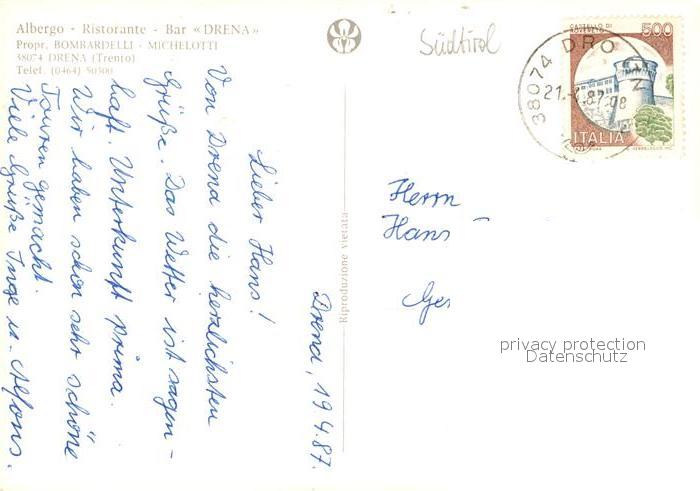 Albergo - Ristorante - Bar «DRENA»
Propr. BOMBARDELLI - MICHELOTTI
38074 DRENA (Trento)
Telef. (0464) 50500
Drena, 19.4.87.
Lieber Hans!
Von Drena die herzlichsten
Grüße. Das Wetter ist sagen-
haft. Unterkunft prima.
Wir haben schon sehr schöne
Touren gemacht.
Viele Grüße Inge u. Alfons.
Riproduzione vietata
Südtirol
CASTELLO DI
ROVERETO
500
ITALIA
38074 DRO
21.
87-08
Herrn
Hans
privacy protection
Datenschutz